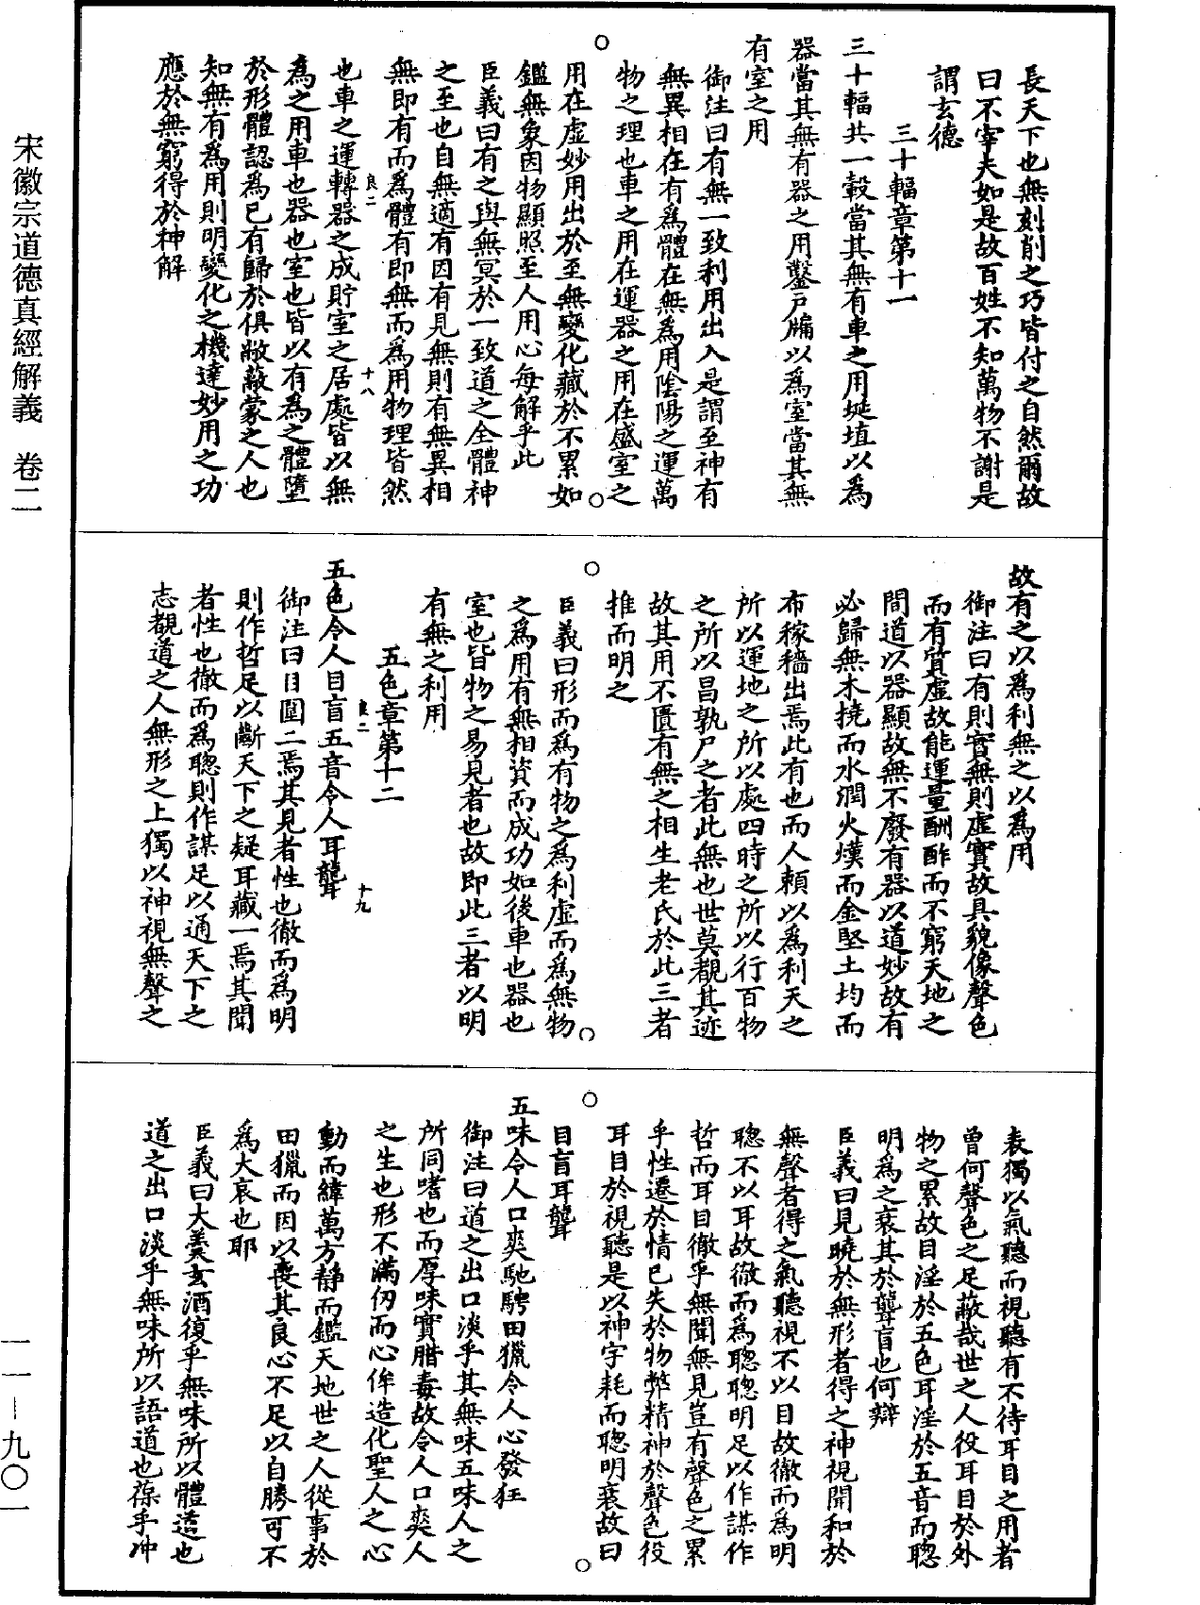 宋徽宗道德真經解義　卷二
長天下也無刻削之巧皆付之自然爾故
曰不宰夫如是故百姓不知萬物不謝是
謂玄德
三十輻章第十一
三十輻共一轂當其無有車之用埏埴以為
器當其無有器之用鑿戶牖以為室當其無
有室之用
御注曰有無一致利用出入是謂至神有
無異相在有為體在無為用陰陽之運萬
物之理也車之用在運器之用在盛室之
用在虛妙用出於至無變化藏於不累如
鑑無象因物顯照至人用心每解乎此
臣義曰有之與無冥於一致道之全體神
之至也自無適有因有見無則有無異相
無即有而為體有即無而為用物理皆然
良二　十八
也車之運轉器之成貯室之居處皆以無
為之用車也器也室也皆以有為之體墮
於形體認為已有歸於俱敝蔽蒙之人也
知無有為用則明變化之機達妙用之功
應於無窮得於神解
故有之以為利無之以為用
御注曰有則實無則虛實故具貌像聲色
而有質虛故能運量酬酢而不窮天地之
間道以器顯故無不廢有器以道妙故有
必歸無木撓而水潤火熯而金堅土均而
布稼穡出焉此有也而人賴以為利天之
所以運地之所以處四時之所以行百物
之所以昌孰尸之者此無也世莫覩其迹
故其用不匱有無之相生老氏於此三者
推而明之
臣義曰形而為有物之為利虛而為無物
之為用有無相資而成功如後車也器也
室也皆物之易見者也故即此三者以明
有無之利用
五色章第十二
良二　十九
五色令人目盲五音令人耳聾
御注曰目圍二焉其見者性也徹而為明
則作哲足以斷天下之疑耳藏一焉其聞
者性也徹而為聰則作謀足以通天下之
志覩道之人無形之上獨以神視無聲之
表獨以氣聽而視聽有不待耳目之用者
曾何聲色之足蔽哉世之人役耳目於外
物之累故目淫於五色耳淫於五音而聰
明為之衰其於聾盲也何辯
臣義曰見曉於無形者得之神視聞和於
無聲者得之氣聽視不以目故徹而為明
聰不以耳故徹而為聰聰明足以作謀作
哲而耳目徹乎無聞無見豈有聲色之累
乎性遷於情已失於物弊精神於聲色役
耳目於視聽是以神宇耗而聰明衰故曰
目盲耳聾
五味令人口爽馳騁田獵令人心發狂
御注曰道之出口淡乎其無味五味人之
所同嗜也而厚味實腊毒故令人口爽人
之生也形不滿仞而心侔造化聖人之心
動而緯萬方靜而鑑天地世之人從事於
田獵而因以喪其良心不足以自勝可不
為大哀也耶
臣義曰大羹玄酒復乎無味所以體道也
道之出口淡乎無味所以語道也葆乎沖
一一—九〇一